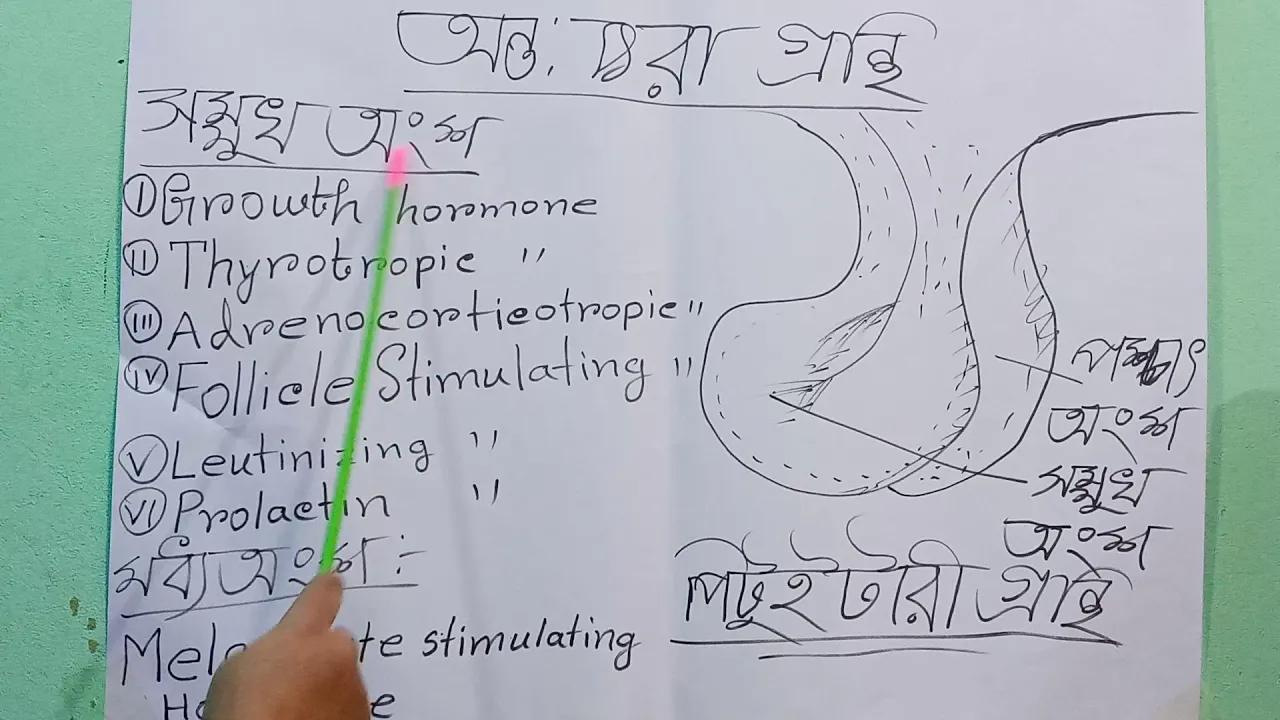 অন্ত: ক্ষরা গ্রন্থি
সম্মুখ অংশ
I Growth hormone
II Thyrotropic "
III Adrenocorticotropic "
IV Follicle Stimulating "
V Leutinizing "
VI Prolactin "
মধ্য অংশ :-
stimulating
পশ্চাৎ
অংশ
সম্মুখ
অংশ
পিটুইটারী গ্রন্থি